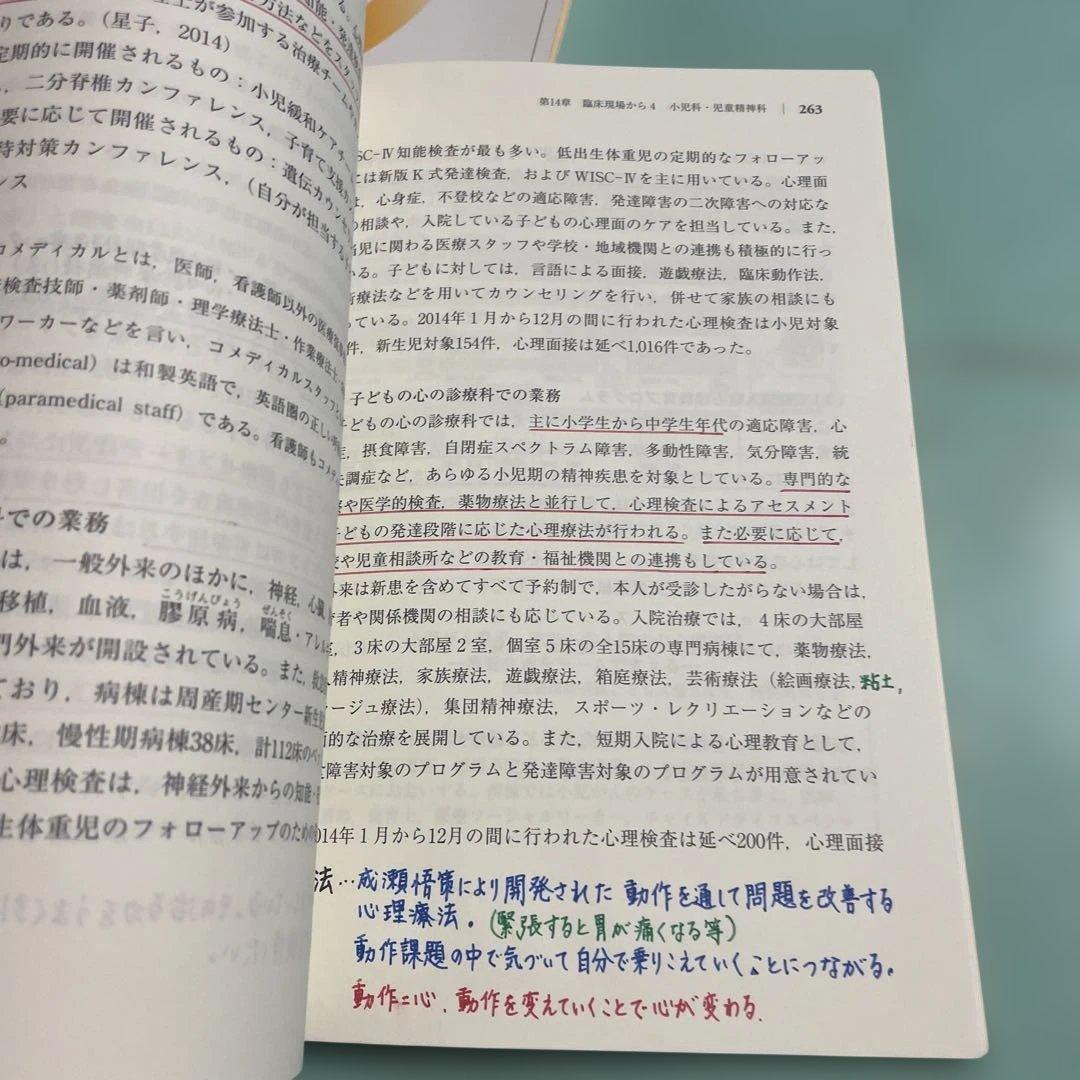 方法などをスタッフ
士が参加する治療チーム
りである。(星子, 2014)
定期的に開催されるもの：小児緩和ケアチー
, 二分脊椎カンファレンス, 子育て支援カ
要に応じて開催されるもの：遺伝カウンセ
待対策カンファレンス, (自分が担当する
ンス
コメディカルとは, 医師, 看護師以外の医療
検査技師・薬剤師・理学療法士・作業療法士
ワーカーなどを言い, コメディカルスタッフ
o-medical) は和製英語で, 英語圏の正しい
(paramedical staff) である。看護師もコメデ
。
での業務
は, 一般外来のほかに, 神経, 心臓
移植, 血液, 膠原病, 喘息・アレ
こうげんびょう ぜんそく
門外来が開設されている。また, 救急
ており, 病棟は周産期センター新生
床, 慢性期病棟38床, 計112床のベ
心理検査は, 神経外来からの知能・
生体重児のフォローアップのための
第14章 臨床現場から4 小児科・児童精神科 | 263
SC-Ⅳ知能検査が最も多い。低出生体重児の定期的なフォローアッ
には新版K式発達検査, およびWISC-Ⅳを主に用いている。心理面
は, 心身症, 不登校などの適応障害, 発達障害の二次障害への対応な
の相談や, 入院している子どもの心理面のケアを担当している。また,
当児に関わる医療スタッフや学校・地域機関との連携も積極的に行っ
いる。子どもに対しては, 言語による面接, 遊戯療法, 臨床動作法,
術療法などを用いてカウンセリングを行い, 併せて家族の相談にも
っている。2014年1月から12月の間に行われた心理検査は小児対象
件, 新生児対象154件, 心理面接は延べ1,016件であった。
子どもの心の診療科での業務
子どもの心の診療科では, 主に小学生から中学生年代の適応障害, 心
症, 摂食障害, 自閉症スペクトラム障害, 多動性障害, 気分障害, 統
失調症など, あらゆる小児期の精神疾患を対象としている。専門的な
察や医学的検査, 薬物療法と並行して, 心理検査によるアセスメント
子どもの発達段階に応じた心理療法が行われる。また必要に応じて,
校や児童相談所などの教育・福祉機関との連携もしている。
外来は新患を含めてすべて予約制で, 本人が受診したがらない場合は,
者や関係機関の相談にも応じている。入院治療では, 4床の大部屋
室, 3床の大部屋2室, 個室5床の全15床の専門病棟にて, 薬物療法,
人精神療法, 家族療法, 遊戯療法, 箱庭療法, 芸術療法 (絵画療法, 粘土,
ラージュ療法), 集団精神療法, スポーツ・レクリエーションなどの
的な治療を展開している。また, 短期入院による心理教育として,
障害対象のプログラムと発達障害対象のプログラムが用意されてい
014年1月から12月の間に行われた心理検査は延べ200件, 心理面接
法…成瀬悟策により開発された 動作を通して問題を改善する
心理療法。(緊張すると胃が痛くなる等)
動作課題の中で気づいて自分で乗りこえていくことにつながる。
動作=心、動作を変えていくことで心が変わる.